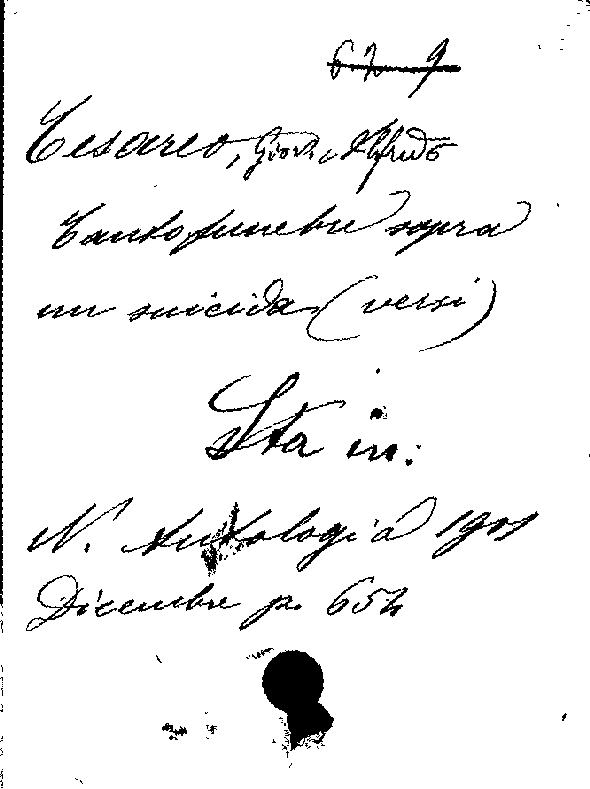 Cesareo, Giov. Alfredo
Canto funebre sopra
un suicida (versi)
Sta in:
N. Antologia 1901
Dicembre p. 654